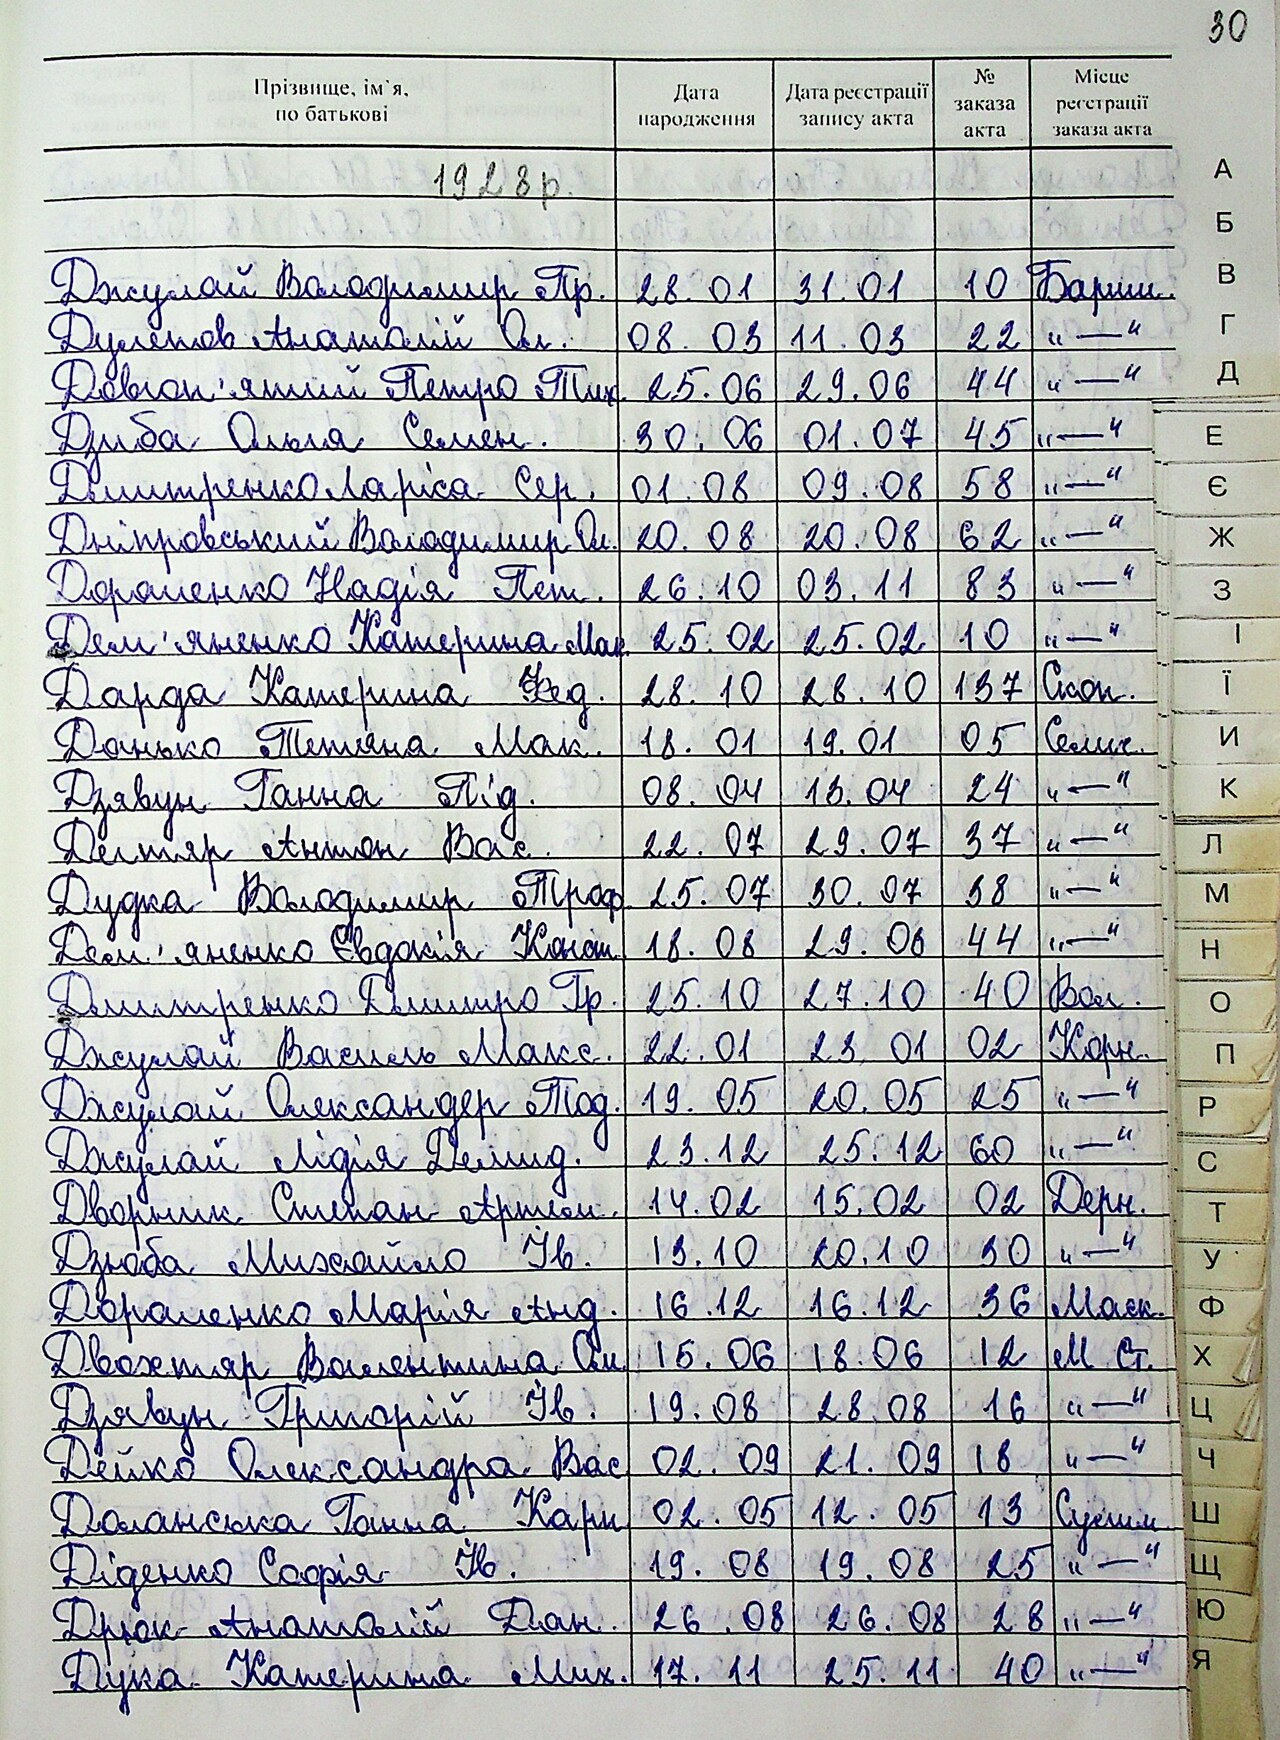 30
Прізвище, ім'я, по батькові Дата народження Дата реєстрації запису акта № заказа акта Місце реєстрації заказа акта
1928 р.
Джулай Володимир Гр. 28.01 31.01 10 Бариш.
Дулепов Анатолій Ол. 08.03 11.03 22 „—“
Довгоп'ятий Петро Тих. 25.06 29.06 44 „—“
Дзюба Ольга Семен. 30.06 01.07 45 „—“
Дмитренко Лариса Сер. 01.08 09.08 58 „—“
Дніпровський Володимир Ол. 20.08 20.08 62 „—“
Дорошенко Надія Пет. 26.10 03.11 83 „—“
Дем'яненко Катерина Мак. 25.02 25.02 10 „—“
Дарда Катерина Фед. 28.10 28.10 137 Скоп.
Донько Тетяна Мак. 18.01 19.01 05 Селищ.
Дзявун Ганна Під. 08.04 13.04 24 „—“
Дегтяр Антон Вас. 22.07 29.07 37 „—“
Дудка Володимир Троф. 25.07 30.07 38 „—“
Дем'яненко Євдокія Конст. 18.08 29.08 44 „—“
Дмитренко Дмитро Гр. 25.10 27.10 40 Вол.
Джулай Василь Макс. 22.01 23.01 02 Корн.
Джулай Олександер Тод. 19.05 20.05 25 „—“
Джулай Лідія Демид. 23.12 25.12 60 „—“
Дворник Степан Артем. 14.02 15.02 02 Дерн.
Дзюба Михайло Ів. 13.10 20.10 30 „—“
Дорошенко Марія Анд. 16.12 16.12 36 Маск.
Двохтяр Валентина Ол. 15.06 18.06 12 М Ст.
Дзявун Григорій Ів. 19.08 28.08 16 „—“
Дейко Олександра Вас. 02.09 21.09 18 „—“
Доланська Ганна Карп. 02.05 12.05 13 Сулим.
Діденко Софія Ів. 19.08 19.08 25 „—“
Дрюк Анатолій Дан. 26.08 26.08 28 „—“
Дука Катерина Мих. 17.11 25.11 40 „—“
А
Б
В
Г
Д
Е
Є
Ж
З
І
Ї
И
К
Л
М
Н
О
П
Р
С
Т
У
Ф
Х
Ц
Ч
Ш
Щ
Ю
Я